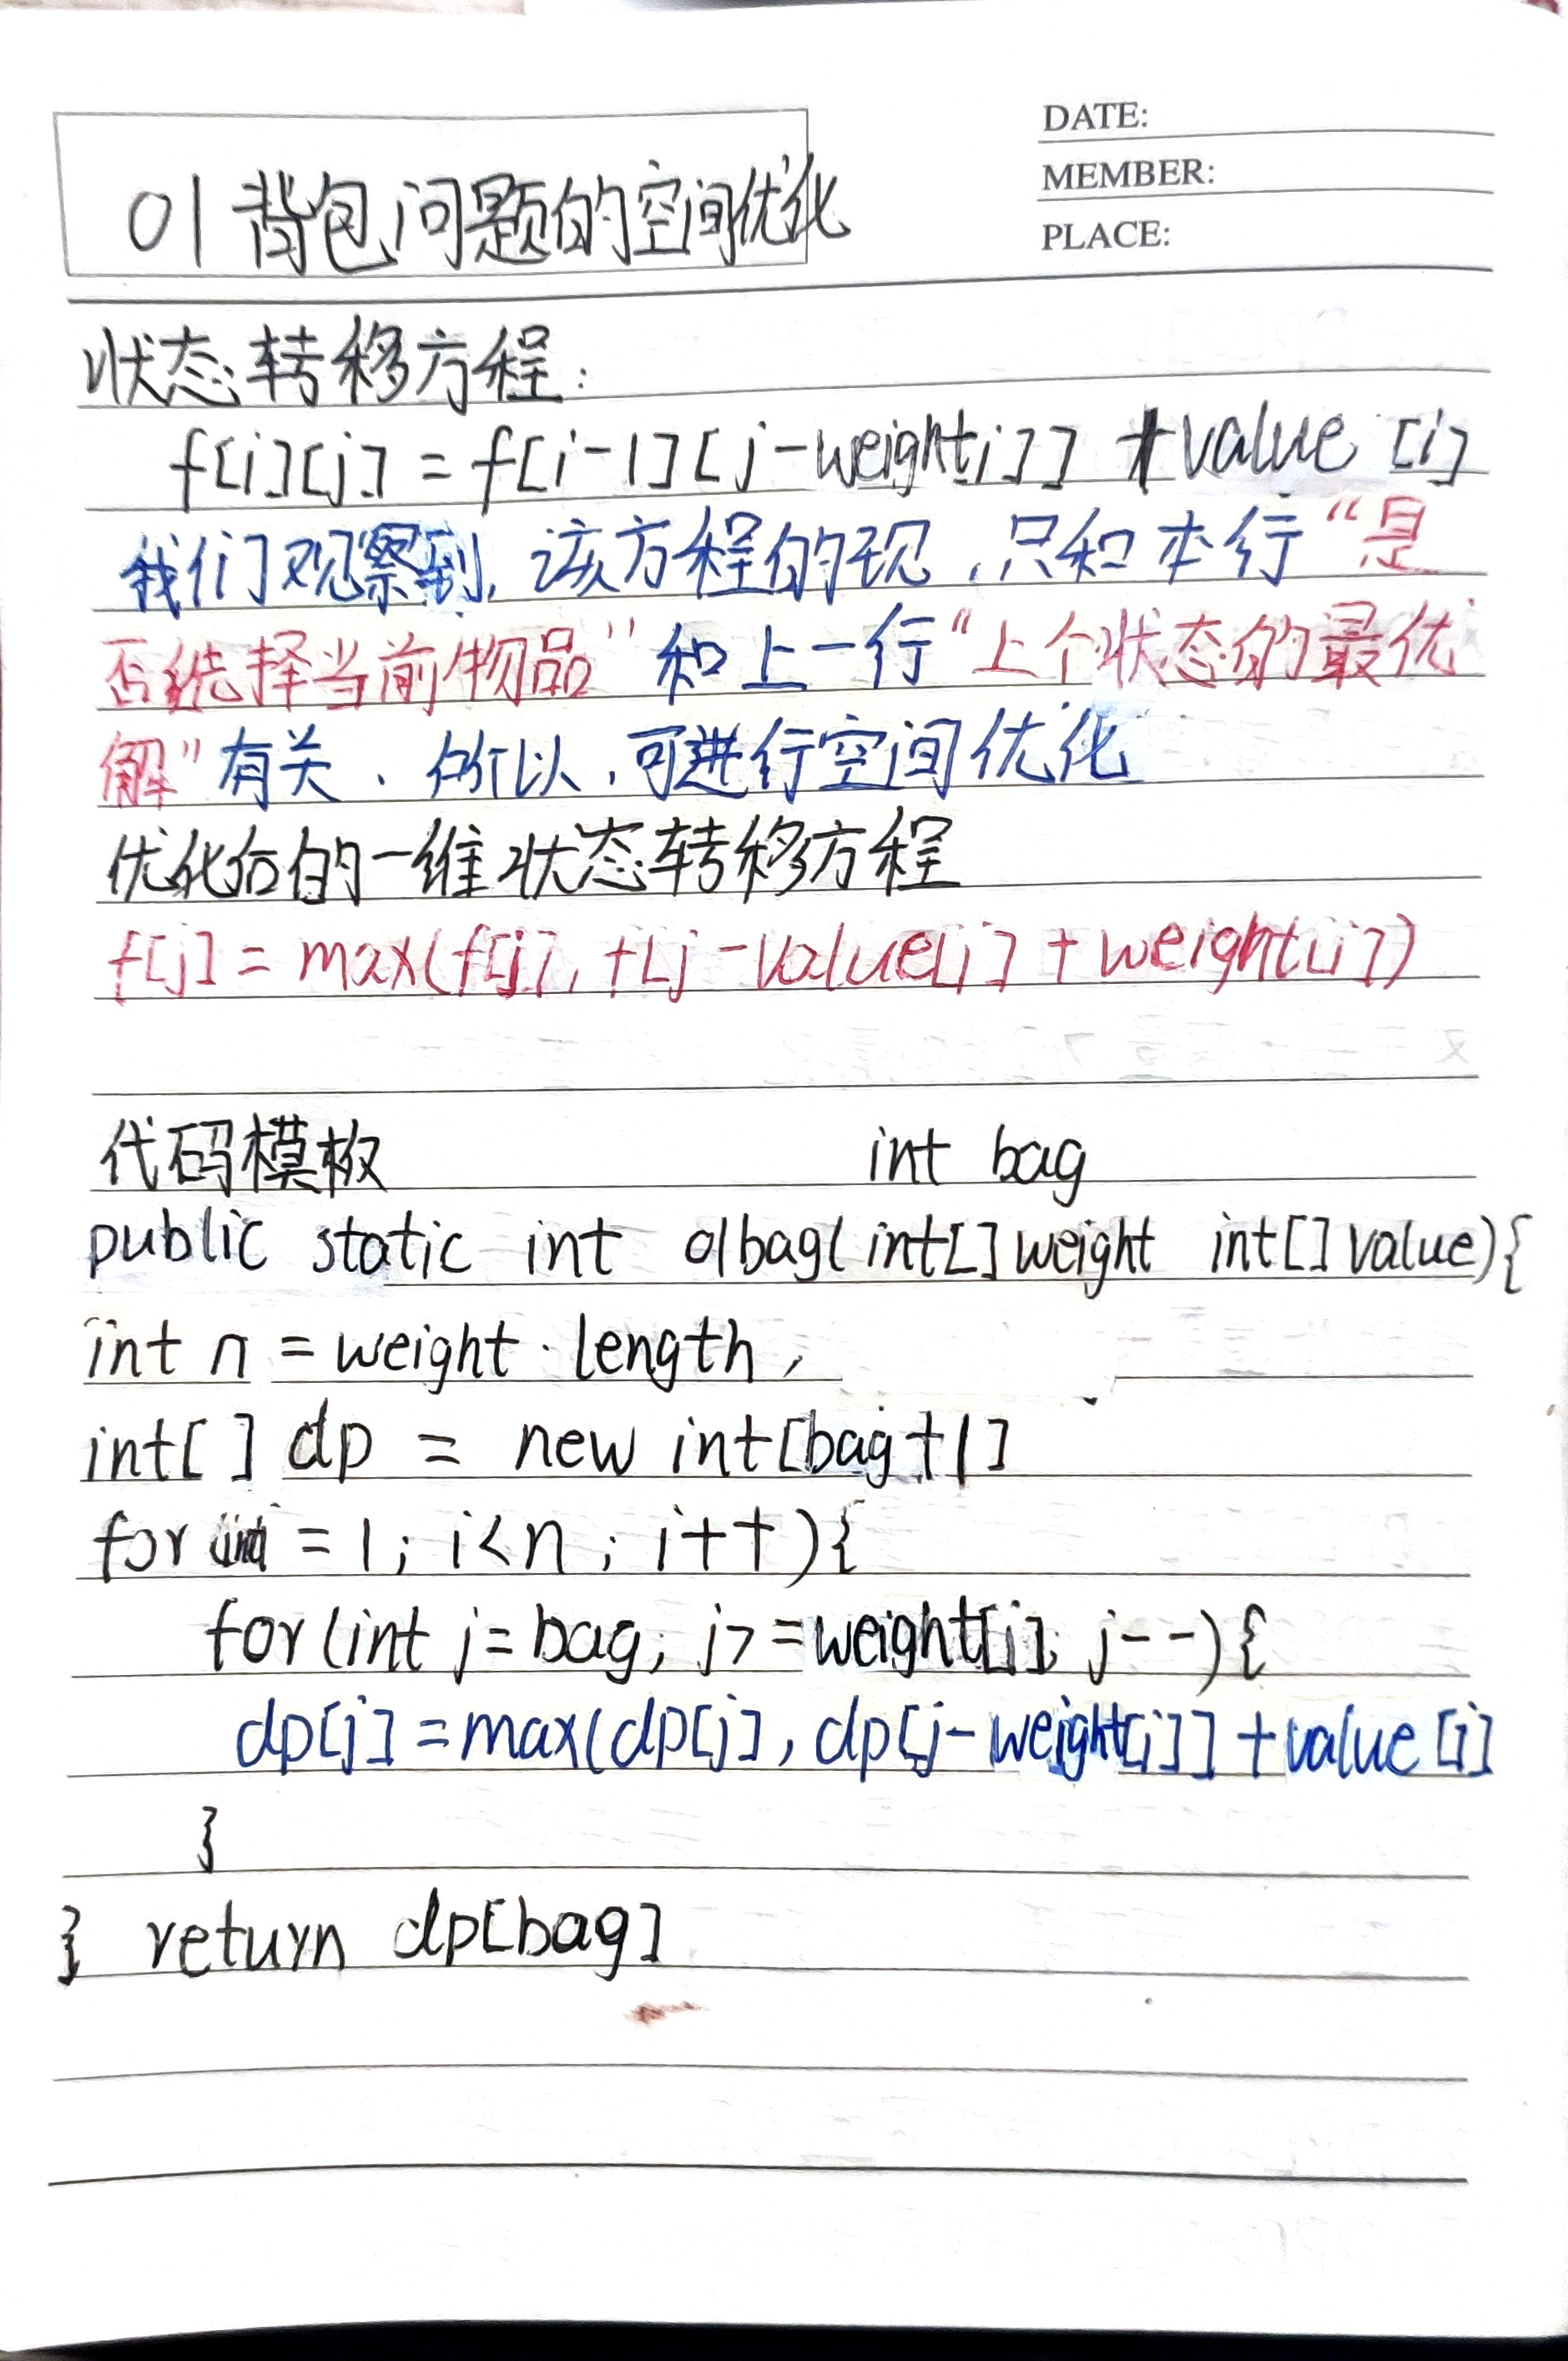 DATE:
MEMBER:
PLACE:
01背包问题的空间优化
状态转移方程:
f[i][j] = f[i-1][j-weight[i]] + value [i]
我们观察到, 该方程的现, 只和本行“是
否选择当前物品”和上一行“上个状态的最优
解”有关、所以, 可进行空间优化
优化后的一维状态转移方程
f[j] = max(f[j], f[j-value[i] + weight[i])
代码模板 int bag
public static int 01bag(int[] weight int[] value){
int n = weight.length,
int[] dp = new int[bag+1]
for int = 1; i<n; i++){
for(int j=bag; j>=weight[i]; j--){
dp[j] = max(dp[j], dp[j-weight[i]] + value [i]
}
} return dp[bag]